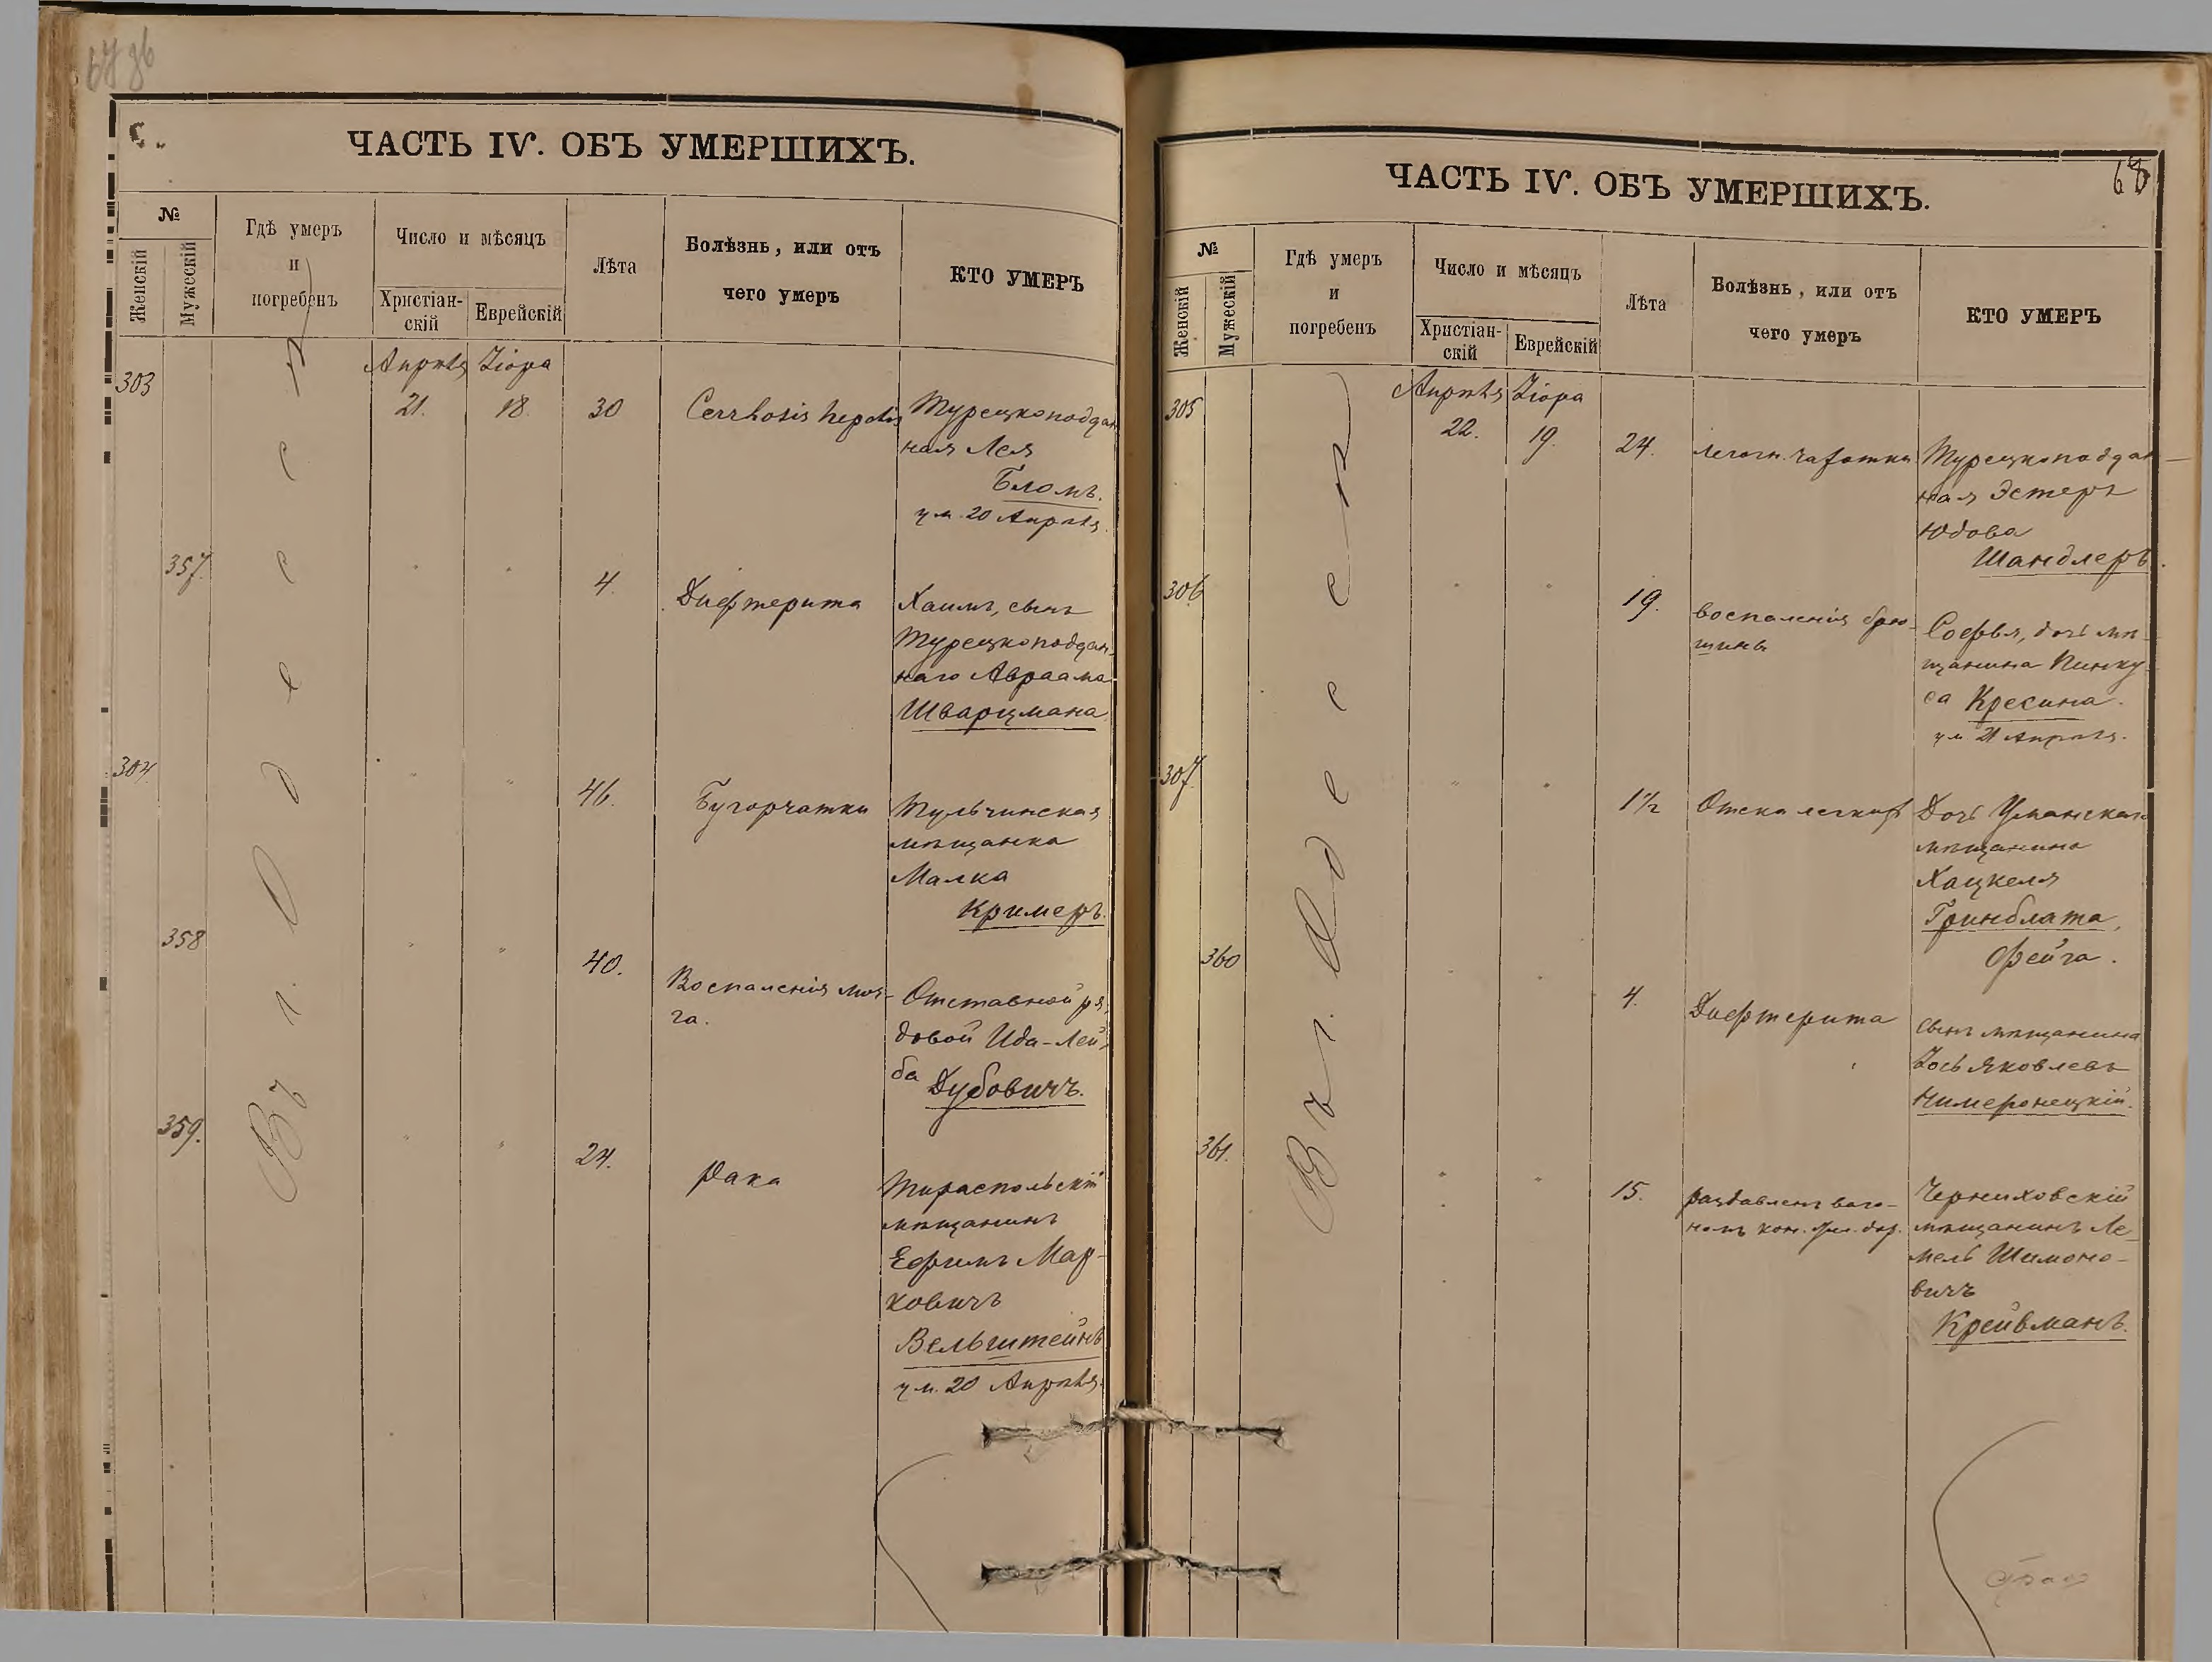 67 об
С.
ЧАСТЬ IV. ОБЪ УМЕРШИХЪ.
№
Женскій
Мужескій
Гдѣ умеръ
и
погребенъ
Число и мѣсяцъ
Христіан-
скій
Еврейскій
Лѣта
Болѣзнь, или отъ
чего умеръ
КТО УМЕРЪ
Въ г. Одессѣ
Апрѣля Ііора
303
21. 18. 30 Cerrhosis hepatis Турецкоподдан
ная Лея
Бломъ.
ум. 20 Апрѣля.
357. " " 4. Дифтерита Хаимъ, сынъ
Турецкоподдан-
наго Авраама
Шварцмана
304. " " 46. Бугорчатки Тульчинская
мѣщанка
Малка
Кримеръ.
358 " " 40. Воспаленія моз-
га.
Отставной ря-
довой Ида-Лей-
ба Дубовичъ.
359. " " 24. Рака Тираспольскій
мѣщанинъ
Ефримъ Мар-
ковичъ
Вельштейнъ
ум. 20 Апрѣля.
68
ЧАСТЬ IV. ОБЪ УМЕРШИХЪ.
№
Женскій
Мужескій
Гдѣ умеръ
и
погребенъ
Число и мѣсяцъ
Христіан-
скій
Еврейскій
Лѣта
Болѣзнь, или отъ
чего умеръ
КТО УМЕРЪ
Въ г. Одессѣ
Апрѣля Ііора
305
22. 19. 24. легочн. чахотки Турецкоподдан-
ная Эстеръ
Юдова
Шандлеръ.
306 " " 19. воспаленія брю-
шины
Софья, дочь мѣ-
щанина Пинку-
са Кресина.
ум 21 Апрѣля.
307. " " 1½ Отека легкихъ Дочь Уманскаго
мѣщанина
Хацкеля
Гринблата,
Фейга.
360 " " 4. Дифтерита сынъ мѣщанина
Іось Яковлевъ
Нимеронецкій.
361. " " 15. раздавленъ ваго-
номъ кон. жел. дор.
Черниховскій
мѣщанинъ Ле-
мель Шимоно-
вичъ
Крейвманъ.